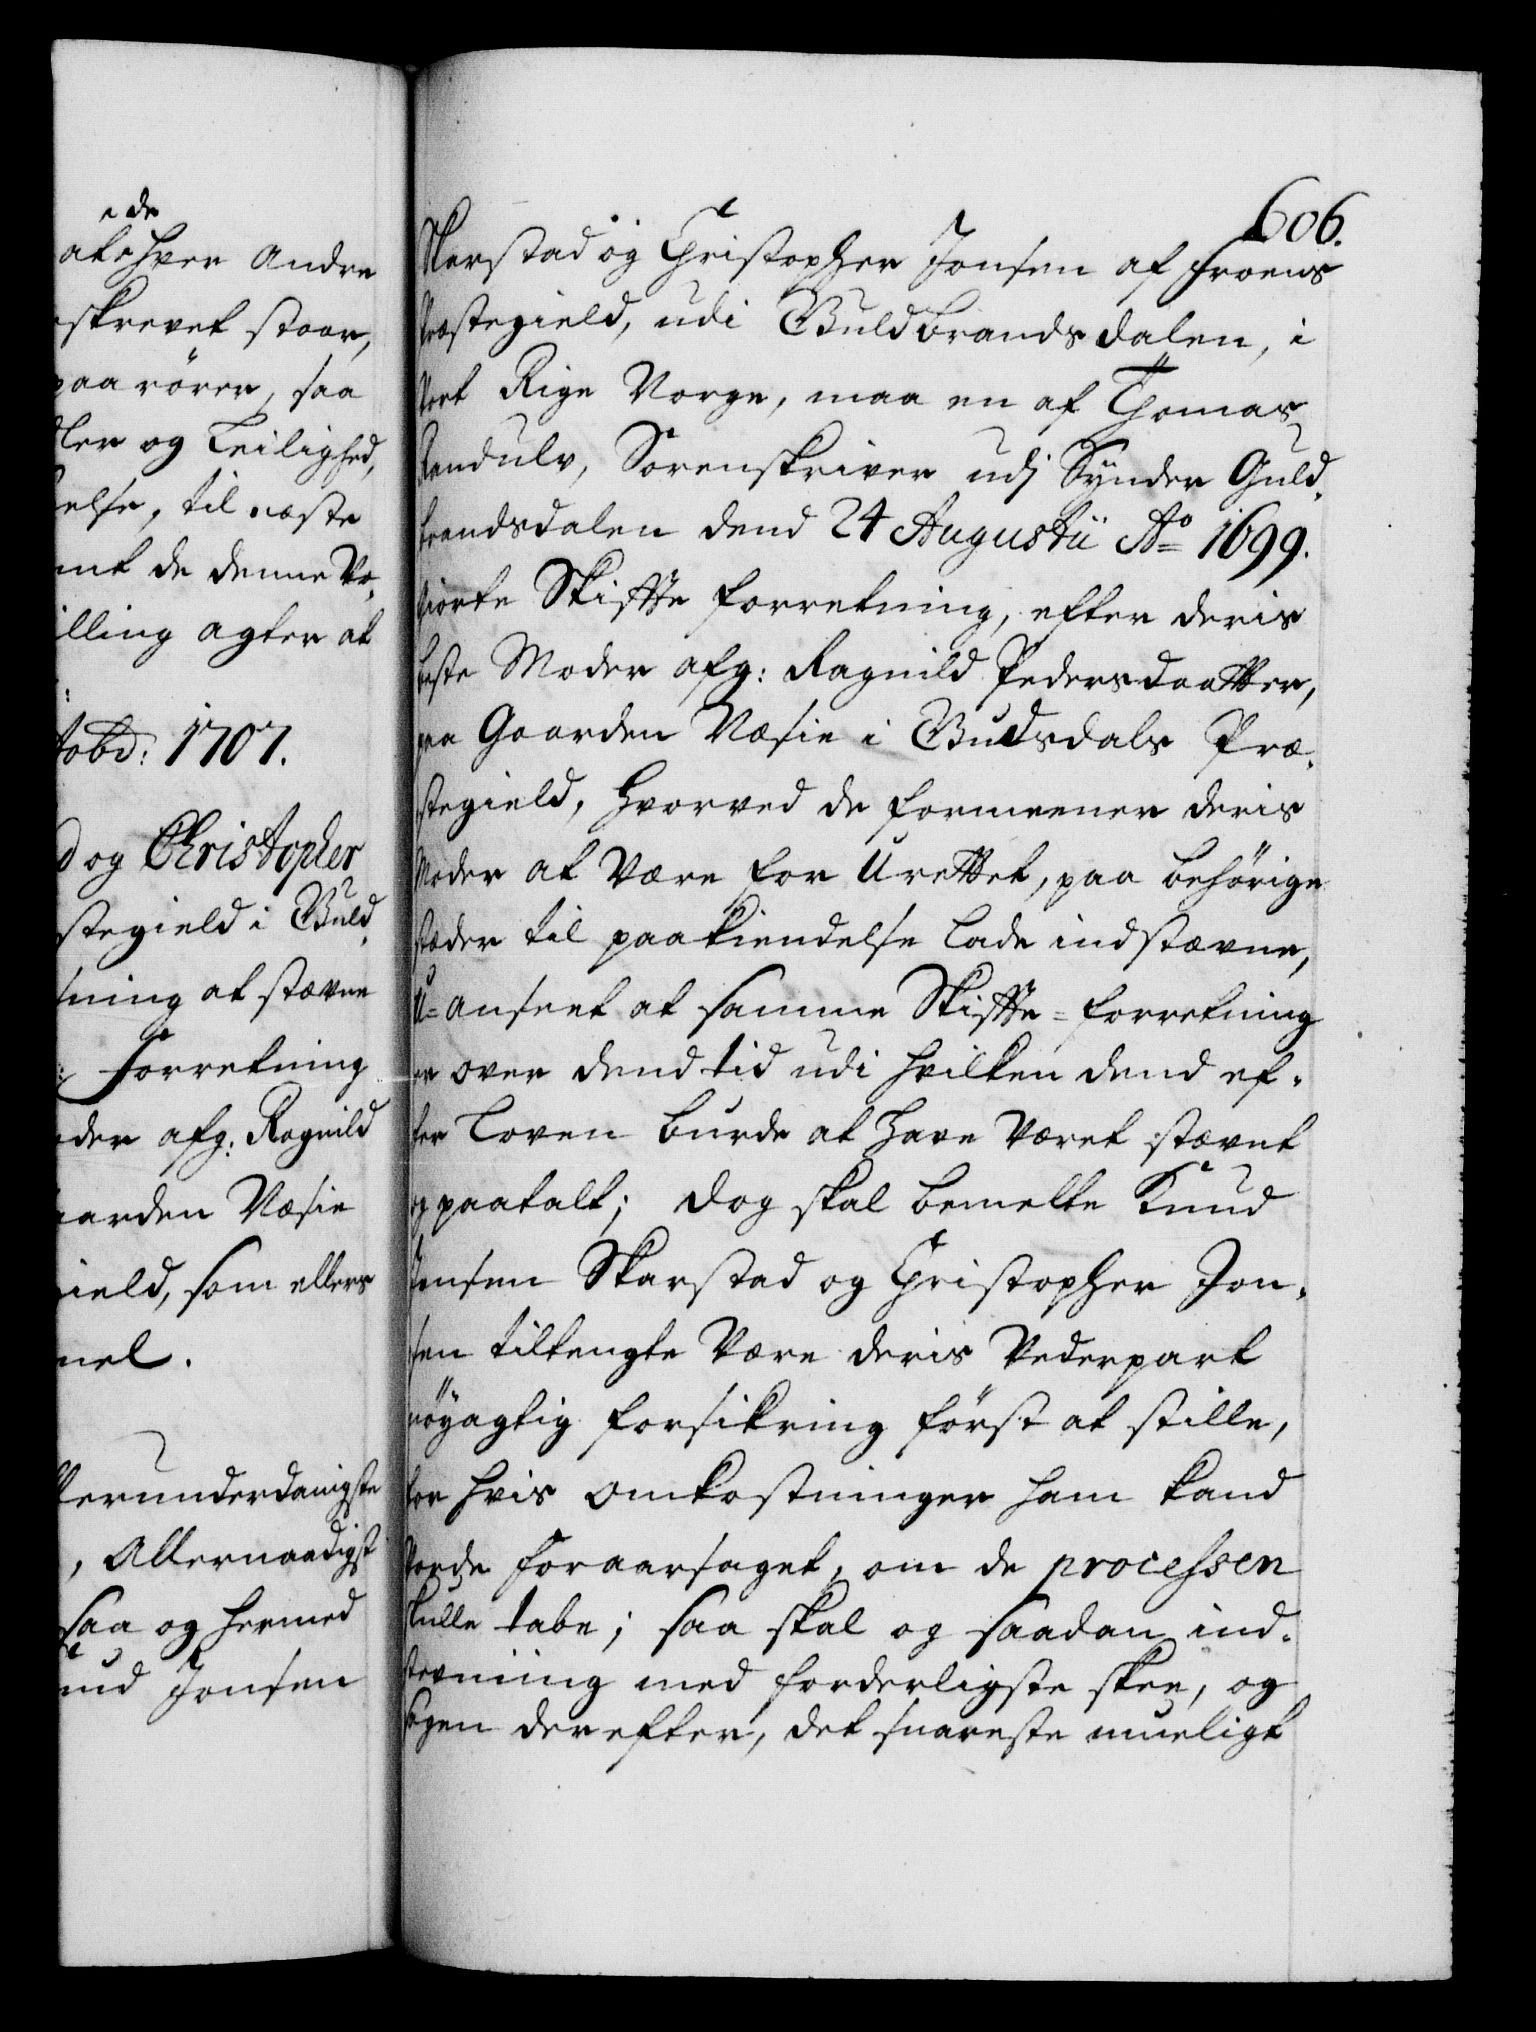 e de
at hver Andre
skrevet staar,
paa rörer, saa
ler og Leilighed,
else, til næste
mt de denne Vo-
illing agter at
Octobd: 1707.
d og Christopher
stegield i Guld
ning at stævne
Forretning
oder afg: Ragnild
aarden Næsie
ield, som ellers
nel.
llerunderdanigste
, Allernaadigst
saa og hermed
nud Jonsen
606.
Skarstad og Christopher Jonsen af Froens
Præstegield, udi Guldbrandsdalen, i
Vort Rige Norge, maa en af Thomas
Randulv, Sorenskriver udj Synder Guld-
brandsdalen dend 24 Augustii Ao 1699.
giorte Skiffte Forretning, efter deris
beste Moder afg: Ragnild Pedersdaatter,
paa Gaarden Næsie i Gudsdals Præ-
stegield, hvorved de formeener deris
Moder at være for Urettet, paa behörige
stæder til paakiendelse lade indstævne,
U-anseet at samme Skiffte-forretning
er over dend tid udi hvilken dend ef-
ter Loven burde at have været stævnet
og paatalt; dog skal bemelte Knud
Jonsen Skarstad og Christopher Jon-
sen tiltengte være deris Vederpart
nöyagtig forsikring först at stille,
for hvis omkostninger ham kand
Vorde foraarsaget, om de processen
skulle tabe; saa skal og saadan ind-
stevning med forderligste skee, og
Sagen derefter, det snareste mueligt